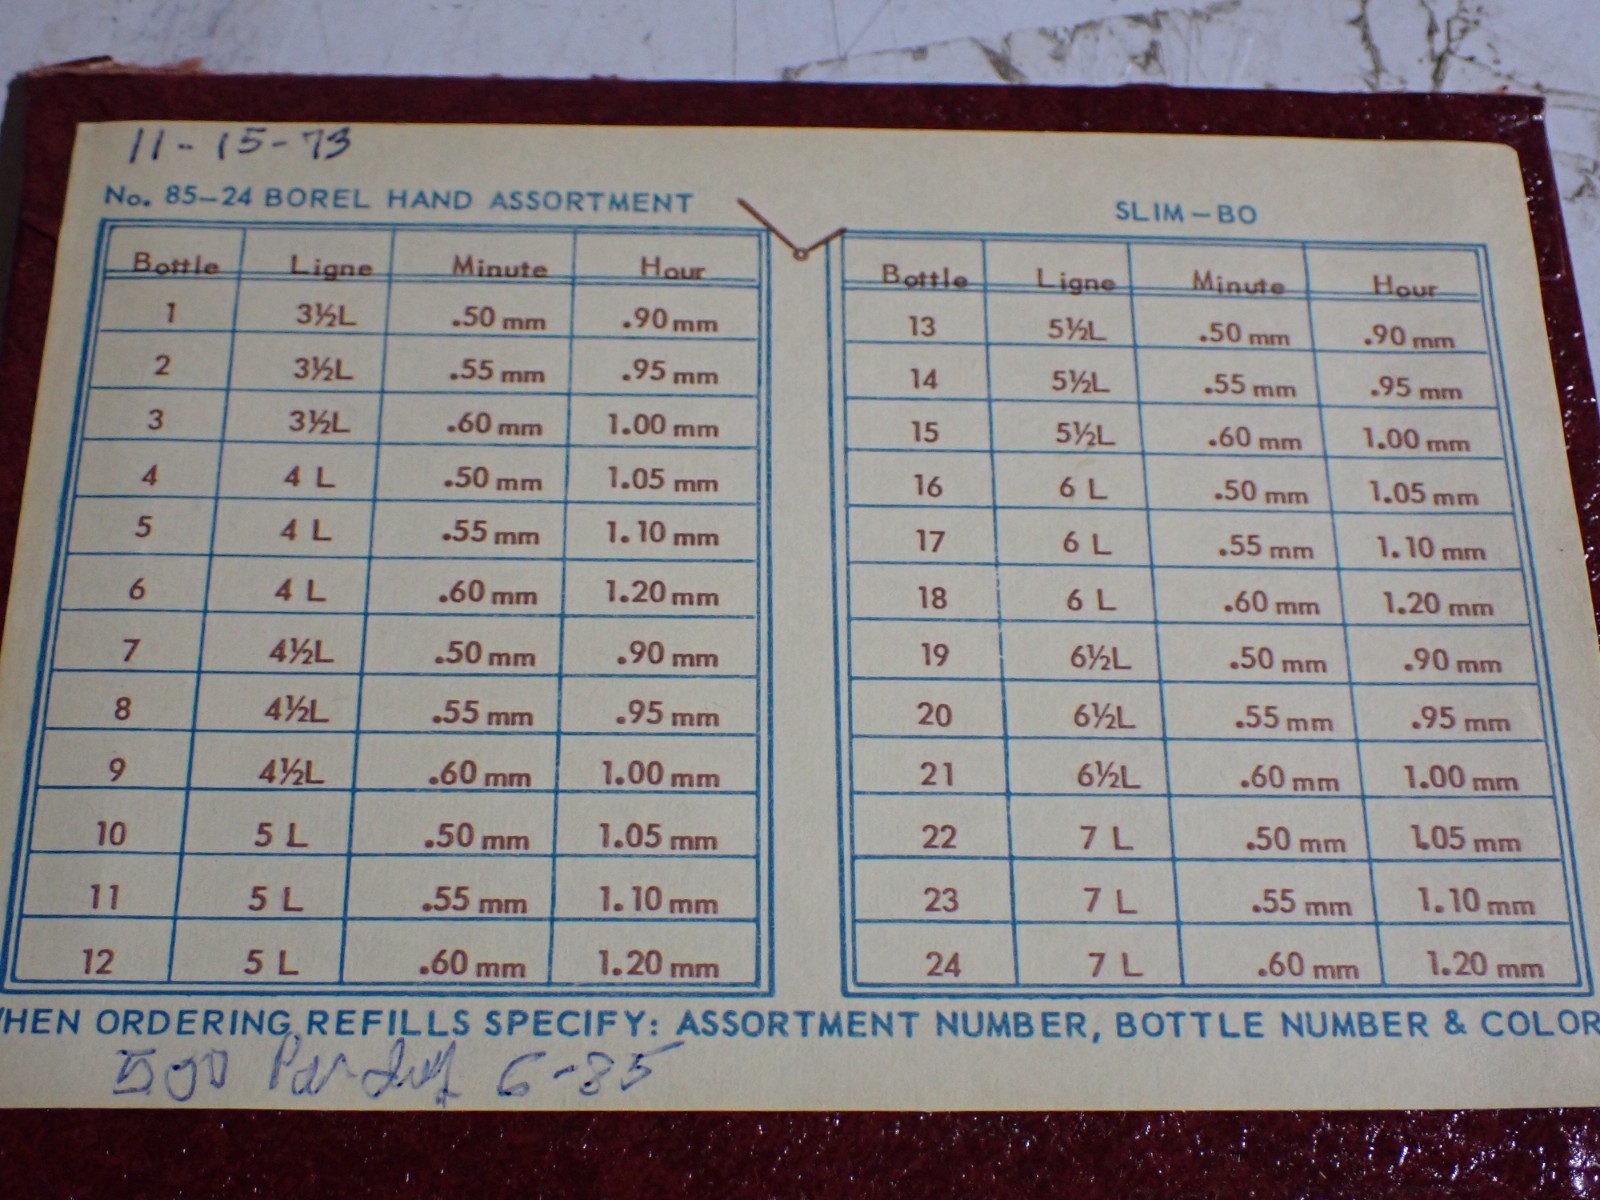 11-15-73
No. 85-24 BOREL HAND ASSORTMENT
Bottle Ligne Minute Hour
1 3½L .50 mm .90 mm
2 3½L .55 mm .95 mm
3 3½L .60 mm 1.00 mm
4 4 L .50 mm 1.05 mm
5 4 L .55 mm 1.10 mm
6 4 L .60 mm 1.20 mm
7 4½L .50 mm .90 mm
8 4½L .55 mm .95 mm
9 4½L .60 mm 1.00 mm
10 5 L .50 mm 1.05 mm
11 5 L .55 mm 1.10 mm
12 5 L .60 mm 1.20 mm
SLIM-BO
Bottle Ligne Minute Hour
13 5½L .50 mm .90 mm
14 5½L .55 mm .95 mm
15 5½L .60 mm 1.00 mm
16 6 L .50 mm 1.05 mm
17 6 L .55 mm 1.10 mm
18 6 L .60 mm 1.20 mm
19 6½L .50 mm .90 mm
20 6½L .55 mm .95 mm
21 6½L .60 mm 1.00 mm
22 7 L .50 mm 1.05 mm
23 7 L .55 mm 1.10 mm
24 7 L .60 mm 1.20 mm
HEN ORDERING REFILLS SPECIFY: ASSORTMENT NUMBER, BOTTLE NUMBER & COLOR
6-85